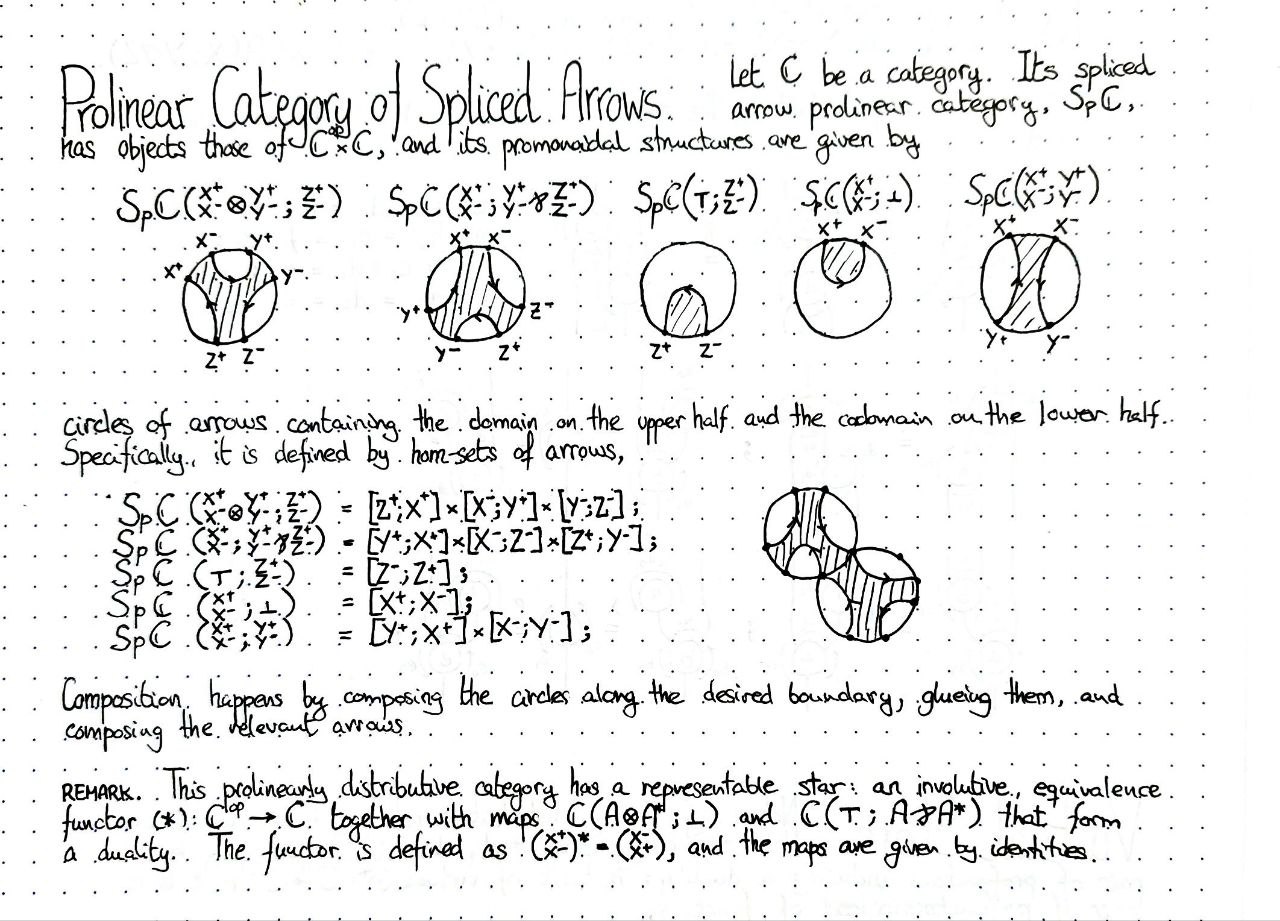 Prolinear Category of Spliced Arrows. Let ℂ be a category. Its spliced
arrow prolinear category, Spℂ,
has objects those of ℂᵒᵖ×ℂ, and its promonoidal structures are given by
Spℂ(X⁺X⁻ ⊗ Y⁺Y⁻ ; Z⁺Z⁻) Spℂ(X⁺X⁻ ; Y⁺Y⁻ ⅋ Z⁺Z⁻) Spℂ(⊤ ; Z⁺Z⁻) Spℂ(X⁺X⁻ ; ⊥) Spℂ(X⁺X⁻ ; Y⁺Y⁻)
X⁻ Y⁺ X⁺ X⁻ X⁺ X⁻ X⁺ X⁻
X⁺ Y⁻ Y⁺ Z⁻
Z⁺ Z⁻ Y⁻ Z⁺ Z⁺ Z⁻ Y⁺ Y⁻
circles of arrows containing the domain on the upper half and the codomain on the lower half.
Specifically, it is defined by hom-sets of arrows,
Spℂ (X⁺X⁻ ⊗ Y⁺Y⁻ ; Z⁺Z⁻) = [Z⁺;X⁺]×[X⁻;Y⁺]×[Y⁻;Z⁻];
Spℂ (X⁺X⁻ ; Y⁺Y⁻ ⅋ Z⁺Z⁻) = [Y⁺;X⁺]×[X⁻;Z⁻]×[Z⁺;Y⁻];
Spℂ (⊤ ; Z⁺Z⁻) = [Z⁻;Z⁺];
Spℂ (X⁺X⁻ ; ⊥) = [X⁺;X⁻];
Spℂ (X⁺X⁻ ; Y⁺Y⁻) = [Y⁺;X⁺]×[X⁻;Y⁻];
Composition happens by composing the circles along the desired boundary, glueing them, and
composing the relevant arrows.
REMARK. This prolinearly distributive category has a representable star: an involutive, equivalence
functor (*): ℂᵒᵖ → ℂ together with maps ℂ(A⊗A* ; ⊥) and ℂ(⊤ ; A⅋A*) that form
a duality. The functor is defined as (X⁺X⁻)* = (X⁻X⁺), and the maps are given by identities.